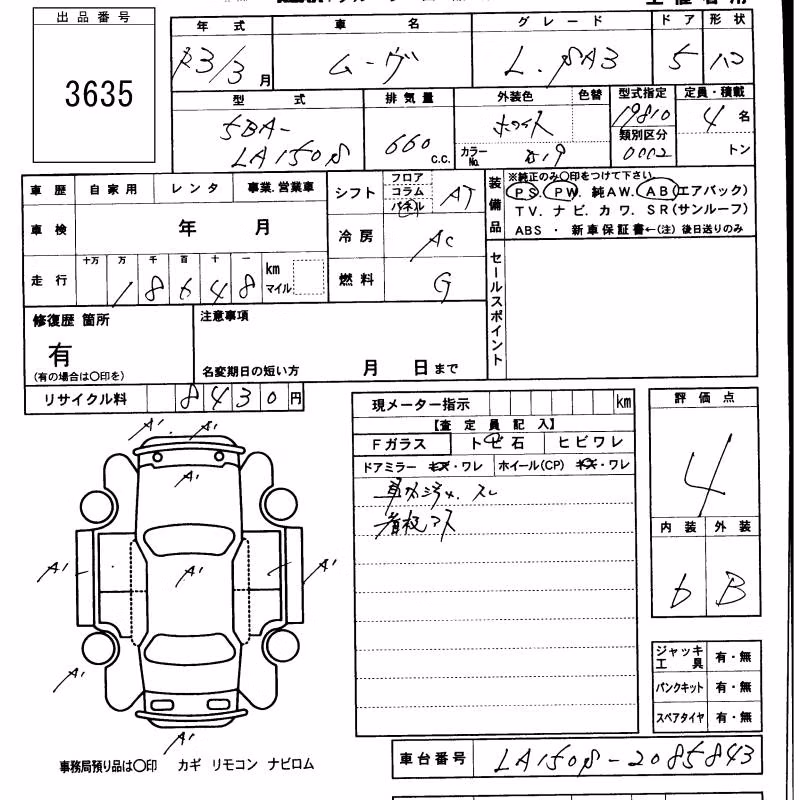 出品番号
3635
年式 車名 グレード ドア 形状
R3/3月 ムーヴ L.SA3 5 ハコ
型式 排気量 外装色 色替 型式指定 定員・積載
5BA-LA150S 660 c.c. ホワイト 19810 4名
カラーNo. W19 類別区分 0002 トン
車歴 自家用 レンタ 事業.営業車
車検 年 月
走行 十万 万 千 百 十 一
18648 km マイル
シフト フロア コラム パネル AT
冷房 AC
燃料 G
装備品
※純正のみ○印をつけて下さい
PS. PW. 純AW. AB(エアバック)
TV. ナビ. カワ. SR(サンルーフ)
ABS ・ 新車保証書←(注) 後日送りのみ
セールスポイント
修復歴 箇所
有
(有の場合は○印を)
注意事項
名変期日の短い方 月 日まで
リサイクル料 8430円
現メーター指示 km
【査定員記入】
Fガラス トビ石 ヒビワレ
ドアミラー キズ・ワレ ホイール(CP) キズ・ワレ
車内汚れ. スレ
看板アト
評価点
4
内装 外装
b B
ジャッキ 工具 有・無
パンクキット 有・無
スペアタイヤ 有・無
A' A'
A'
A' A' A'
A'
A'
事務局預り品は○印 カギ リモコン ナビロム
車台番号 LA150S-2085843